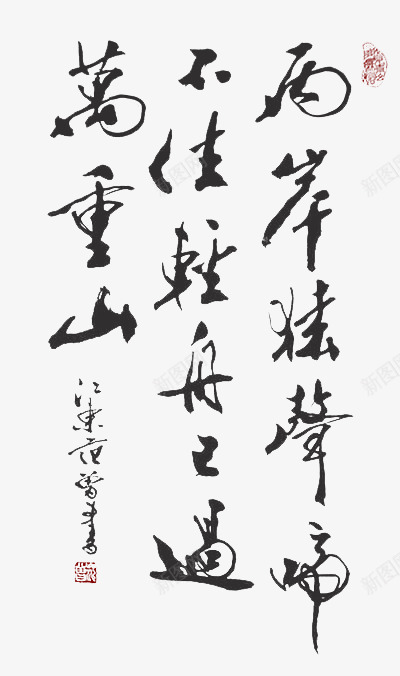 兩岸猿聲啼
不住輕舟已過
萬重山
江東范曾書
新图网